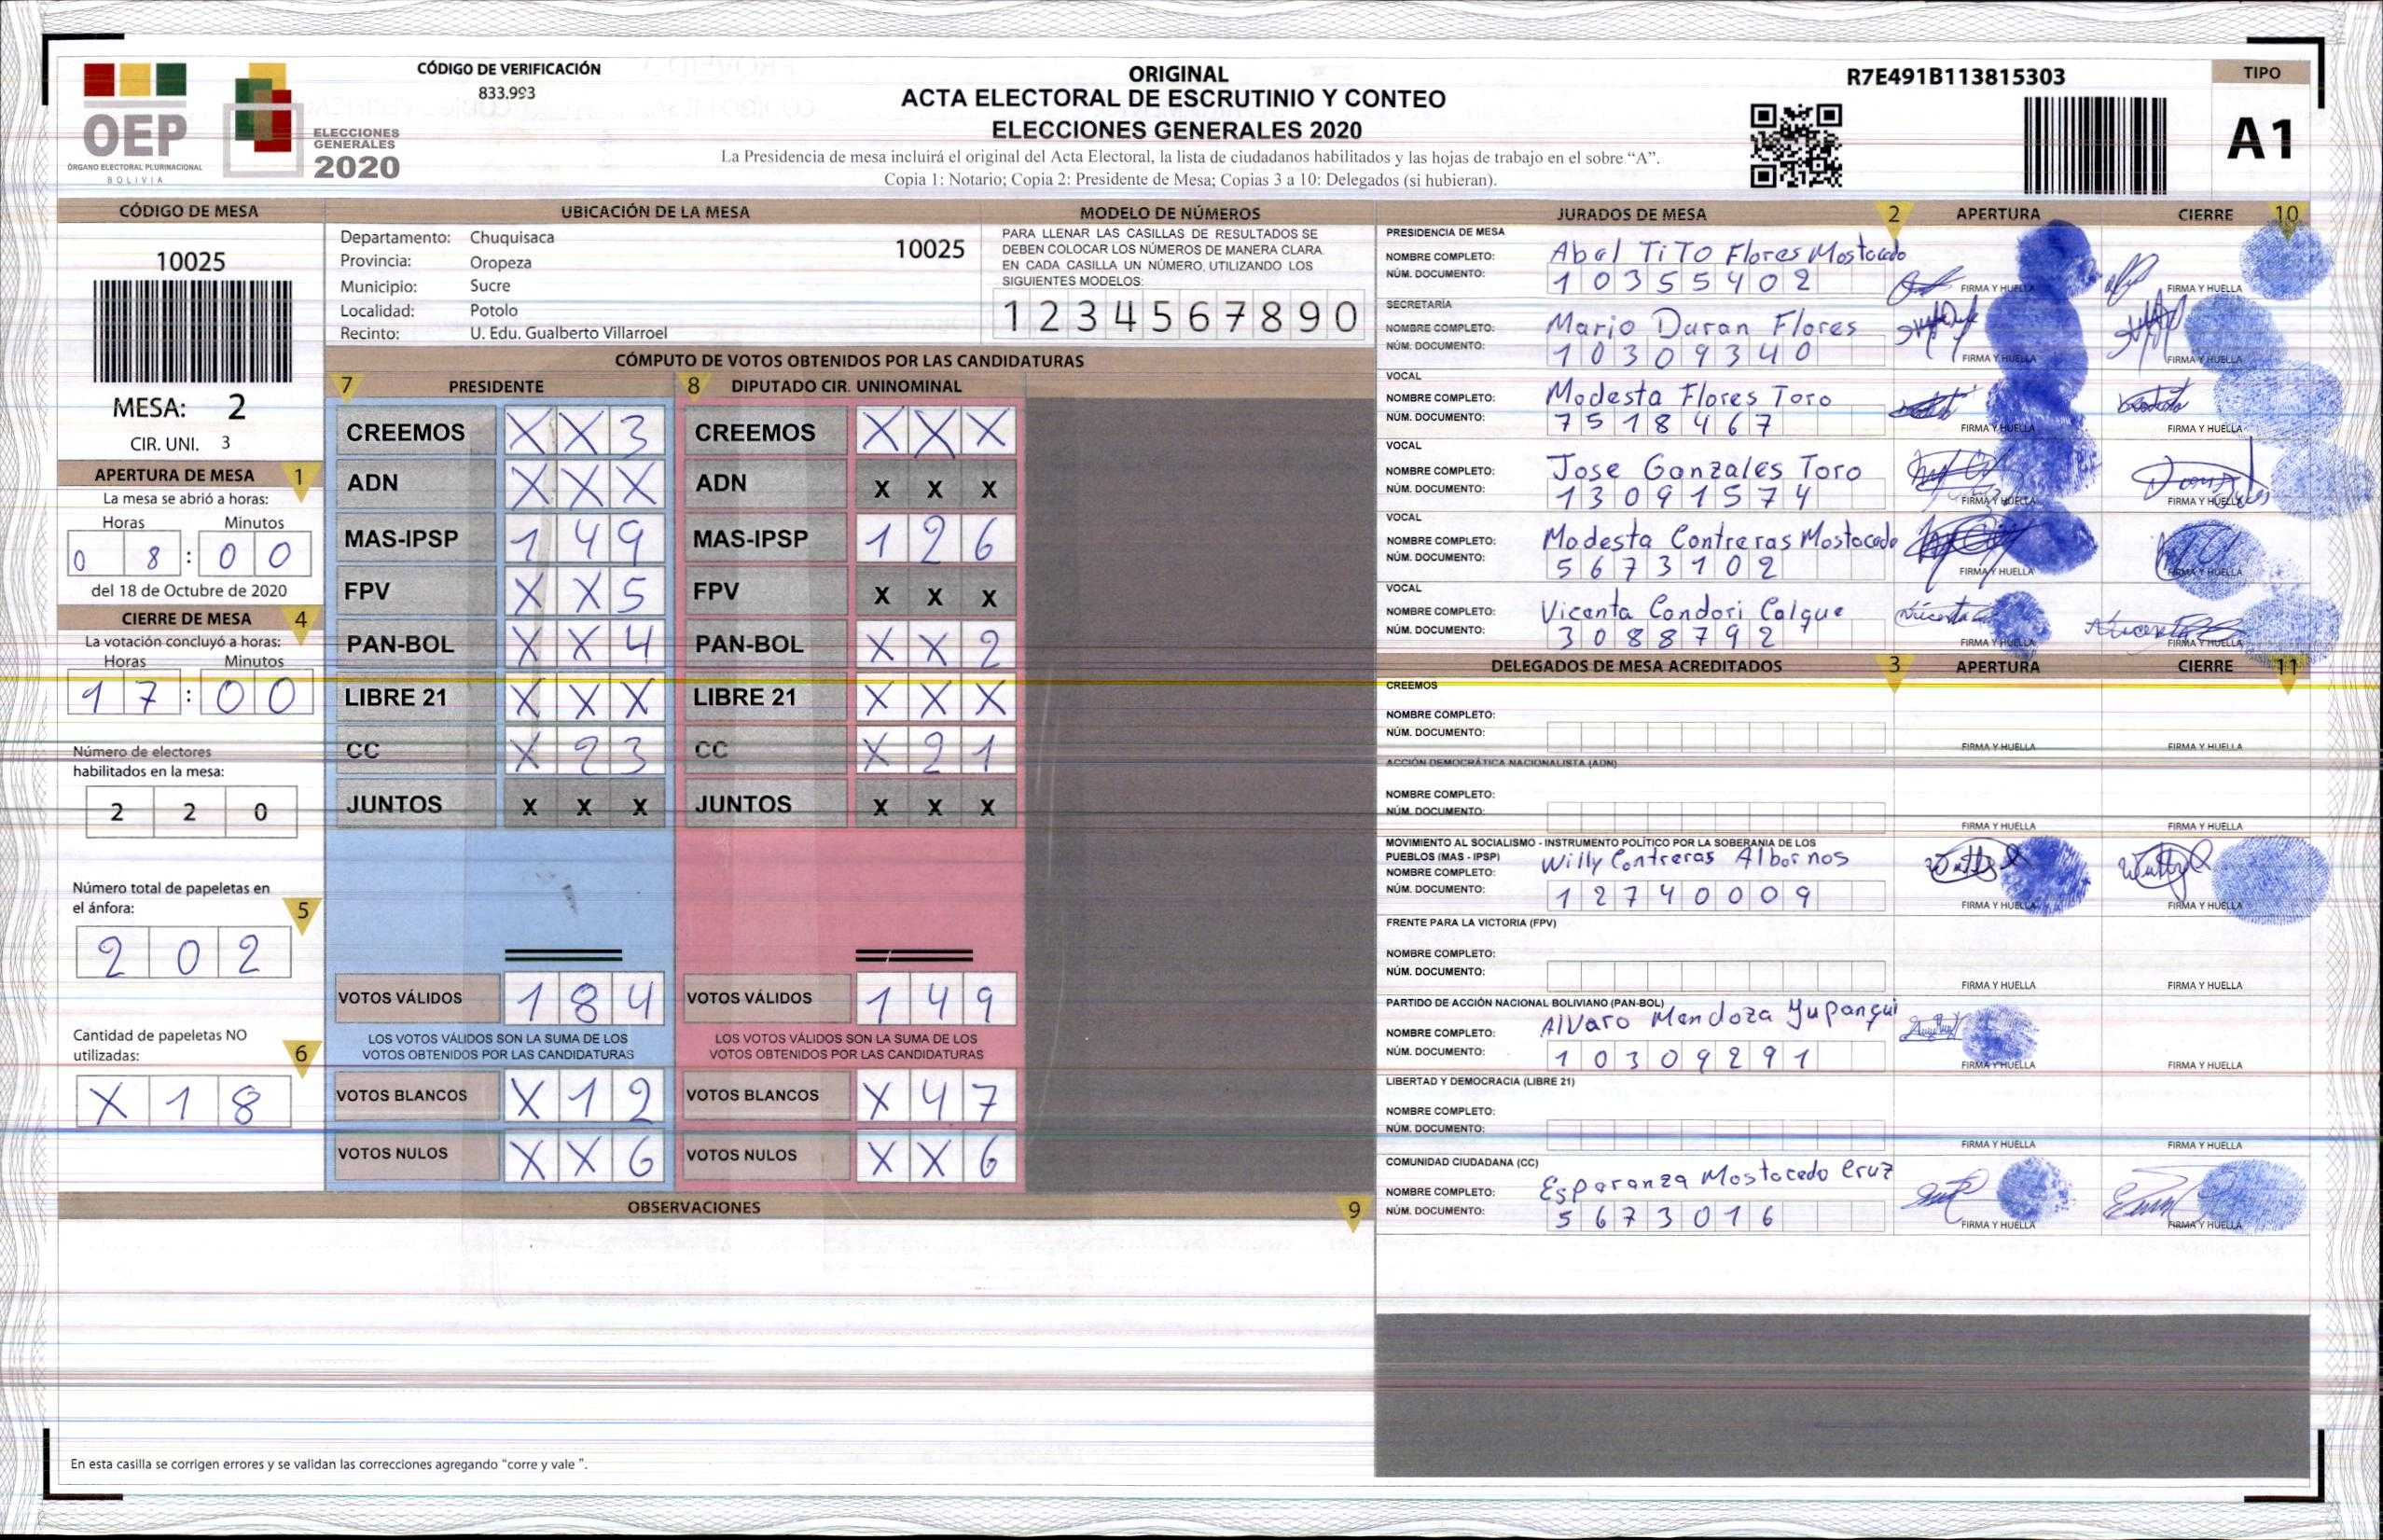 CÓDIGO DE VERIFICACIÓN
833.993
OEP
ÓRGANO ELECTORAL PLURINACIONAL
BOLIVIA
ELECCIONES
GENERALES
2020
ORIGINAL
ACTA ELECTORAL DE ESCRUTINIO Y CONTEO
ELECCIONES GENERALES 2020
La Presidencia de mesa incluirá el original del Acta Electoral, la lista de ciudadanos habilitados y las hojas de trabajo en el sobre “A”.
Copia 1: Notario; Copia 2: Presidente de Mesa; Copias 3 a 10: Delegados (si hubieran).
R7E491B113815303
TIPO
A1
CÓDIGO DE MESA
10025
MESA: 2
CIR. UNI. 3
APERTURA DE MESA 1
La mesa se abrió a horas:
Horas Minutos
0 8 : 0 0
del 18 de Octubre de 2020
CIERRE DE MESA 4
La votación concluyó a horas:
Horas Minutos
1 7 : 0 0
Número de electores
habilitados en la mesa:
2 2 0
Número total de papeletas en
el ánfora: 5
2 0 2
Cantidad de papeletas NO
utilizadas: 6
X 1 8
UBICACIÓN DE LA MESA
Departamento: Chuquisaca 10025
Provincia: Oropeza
Municipio: Sucre
Localidad: Potolo
Recinto: U. Edu. Gualberto Villarroel
MODELO DE NÚMEROS
PARA LLENAR LAS CASILLAS DE RESULTADOS SE
DEBEN COLOCAR LOS NÚMEROS DE MANERA CLARA
EN CADA CASILLA UN NÚMERO, UTILIZANDO LOS
SIGUIENTES MODELOS:
1 2 3 4 5 6 7 8 9 0
CÓMPUTO DE VOTOS OBTENIDOS POR LAS CANDIDATURAS
7 PRESIDENTE 8 DIPUTADO CIR. UNINOMINAL
CREEMOS X X 3 CREEMOS X X X
ADN X X X ADN X X X
MAS-IPSP 1 4 9 MAS-IPSP 1 2 6
FPV X X 5 FPV X X X
PAN-BOL X X 4 PAN-BOL X X 2
LIBRE 21 X X X LIBRE 21 X X X
CC X 2 3 CC X 2 1
JUNTOS X X X JUNTOS X X X
VOTOS VÁLIDOS 1 8 4 VOTOS VÁLIDOS 1 4 9
LOS VOTOS VÁLIDOS SON LA SUMA DE LOS LOS VOTOS VÁLIDOS SON LA SUMA DE LOS
VOTOS OBTENIDOS POR LAS CANDIDATURAS VOTOS OBTENIDOS POR LAS CANDIDATURAS
VOTOS BLANCOS X 1 2 VOTOS BLANCOS X 4 7
VOTOS NULOS X X 6 VOTOS NULOS X X 6
OBSERVACIONES 9
En esta casilla se corrigen errores y se validan las correcciones agregando “corre y vale ”.
JURADOS DE MESA 2 APERTURA CIERRE 10
PRESIDENCIA DE MESA
NOMBRE COMPLETO: Abel TiTO Flores Mostacedo
NÚM. DOCUMENTO: 1 0 3 5 5 4 0 2
FIRMA Y HUELLA FIRMA Y HUELLA
SECRETARÍA
NOMBRE COMPLETO: Mario Duran Flores
NÚM. DOCUMENTO: 1 0 3 0 9 3 4 0
FIRMA Y HUELLA FIRMA Y HUELLA
VOCAL
NOMBRE COMPLETO: Modesta Flores Toro
NÚM. DOCUMENTO: 7 5 1 8 4 6 7
FIRMA Y HUELLA FIRMA Y HUELLA
VOCAL
NOMBRE COMPLETO: Jose Gonzales Toro
NÚM. DOCUMENTO: 1 3 0 9 1 5 7 4
FIRMA Y HUELLA FIRMA Y HUELLA
VOCAL
NOMBRE COMPLETO: Modesta Contreras Mostacedo
NÚM. DOCUMENTO: 5 6 7 3 1 0 2
FIRMA Y HUELLA FIRMA Y HUELLA
VOCAL
NOMBRE COMPLETO: Vicenta Condori Colque
NÚM. DOCUMENTO: 3 0 8 8 7 9 2
FIRMA Y HUELLA FIRMA Y HUELLA
DELEGADOS DE MESA ACREDITADOS 3 APERTURA CIERRE 11
CREEMOS
NOMBRE COMPLETO:
NÚM. DOCUMENTO:
FIRMA Y HUELLA FIRMA Y HUELLA
ACCIÓN DEMOCRÁTICA NACIONALISTA (ADN)
NOMBRE COMPLETO:
NÚM. DOCUMENTO:
FIRMA Y HUELLA FIRMA Y HUELLA
MOVIMIENTO AL SOCIALISMO - INSTRUMENTO POLÍTICO POR LA SOBERANIA DE LOS
PUEBLOS (MAS - IPSP)
NOMBRE COMPLETO: Willy Contreras Albornos
NÚM. DOCUMENTO: 1 2 7 4 0 0 0 9
FIRMA Y HUELLA FIRMA Y HUELLA
FRENTE PARA LA VICTORIA (FPV)
NOMBRE COMPLETO:
NÚM. DOCUMENTO:
FIRMA Y HUELLA FIRMA Y HUELLA
PARTIDO DE ACCIÓN NACIONAL BOLIVIANO (PAN-BOL)
NOMBRE COMPLETO: Alvaro Mendoza Yupanqui
NÚM. DOCUMENTO: 1 0 3 0 9 2 9 1
FIRMA Y HUELLA FIRMA Y HUELLA
LIBERTAD Y DEMOCRACIA (LIBRE 21)
NOMBRE COMPLETO:
NÚM. DOCUMENTO:
FIRMA Y HUELLA FIRMA Y HUELLA
COMUNIDAD CIUDADANA (CC)
NOMBRE COMPLETO: Esperanza Mostacedo Cruz
NÚM. DOCUMENTO: 5 6 7 3 0 1 6
FIRMA Y HUELLA FIRMA Y HUELLA